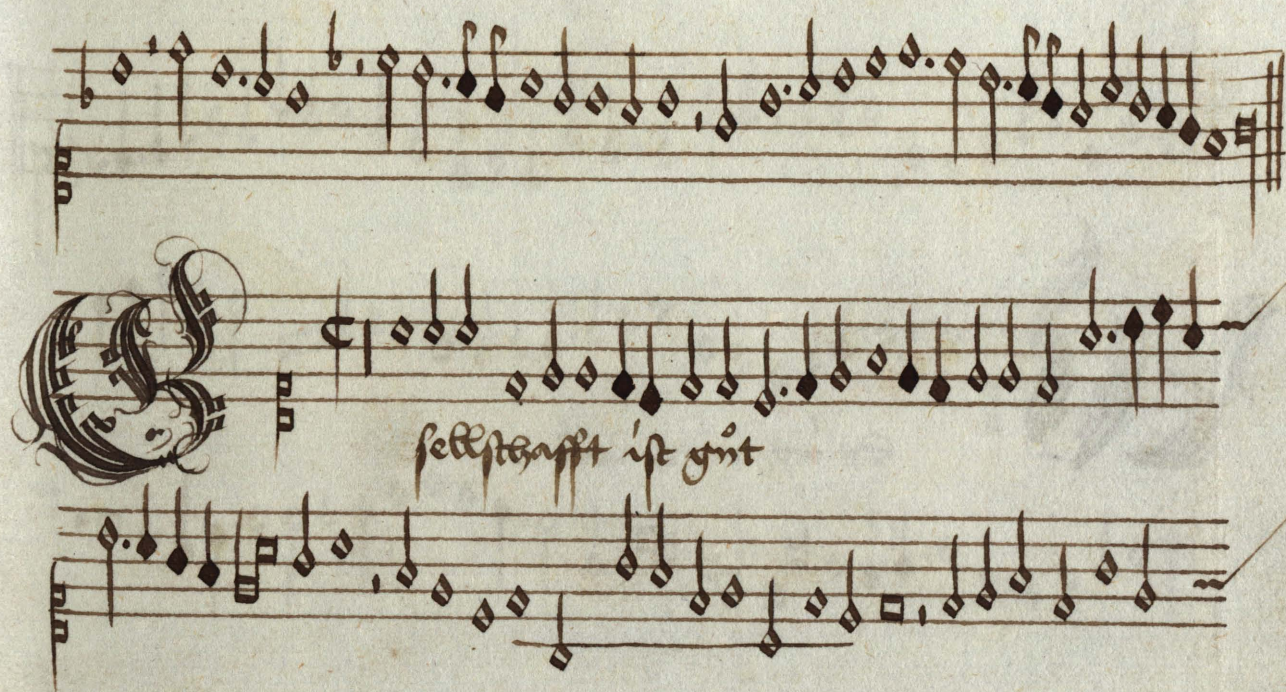 GEsellschafft ist gůt